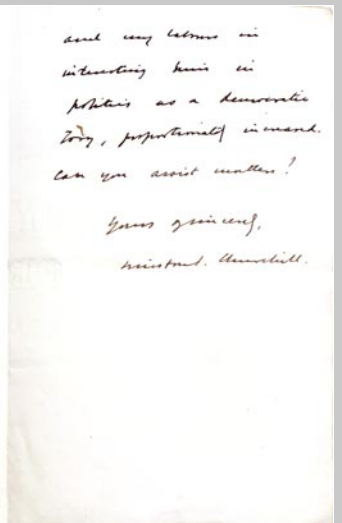 and my labours in
interesting him in
politics as a democratic
Tory, proportionately increased.
Can you assist matters?
Yours sincerely,
Winston S. Churchill.